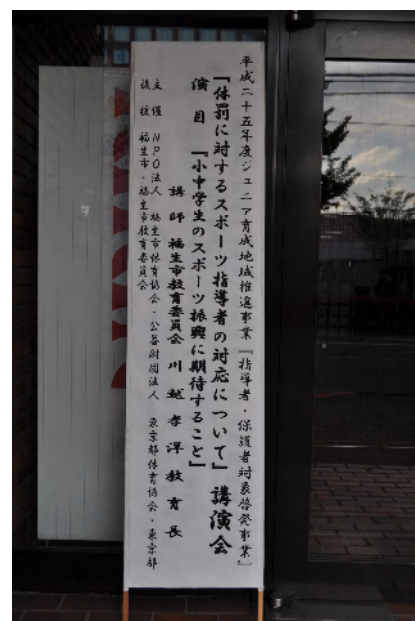 平成二十五年度ジュニア育成地域推進事業『指導者・保護者対象啓発事業』
「体罰に対するスポーツ指導者の対応について」講演会
演目 『小中学生のスポーツ振興に期待すること』
講師 福生市教育委員会 川越孝洋教育長
主催 NPO法人 福生市体育協会・公益財団法人 東京都体育協会・東京都
後援 福生市・福生市教育委員会